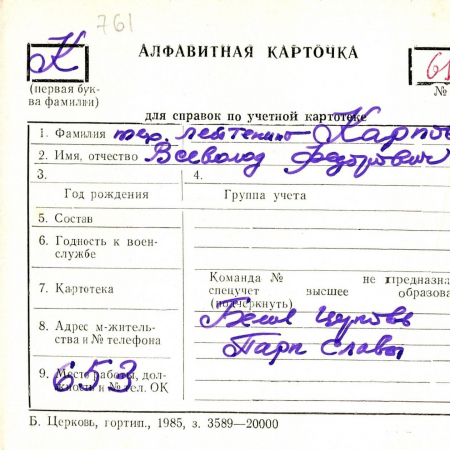 761
К
АЛФАВИТНАЯ КАРТОЧКА
(первая бук-
ва фамилии)
№
для справок по учетной картотеке
1. Фамилия лейтенант Карпов
2. Имя, отчество Всеволод Федорович
3.
4.
Год рождения
Группа учета
5. Состав
6. Годность к воен-
службе
7. Картотека
Команда № не предназна
спецучет высшее образова
(подчеркнуть)
8. Адрес м-житель-
ства и № телефона
Белая Церковь
Парк Славы
9. Место работы, дол-
жность и № тел. ОК
653
Б. Церковь, гортип., 1985, з. 3589—20000